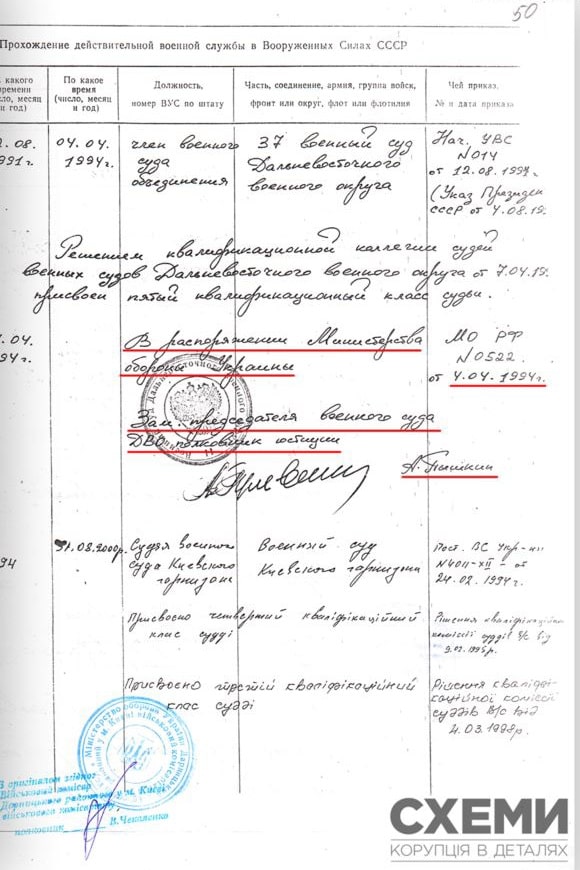 50
Прохождение действительной военной службы в Вооруженных Силах СССР
какого времени (число, месяц и год)
По какое время (число, месяц и год)
Должность, номер ВУС по штату
Часть, соединение, армия, группа войск, фронт или округ, флот или флотилия
Чей приказ, № и дата приказа
.08. 1991г.
04.04. 1994г.
член военного суда объединения
37 военный суд Дальневосточного военного округа
Нач. УВС N014 от 12.08.199
(Указ Президен СССР от 4.08.19
Решением квалификационной коллегии судей
военных судов Дальневосточного военного округа от 7.04.19
присвоен пятый квалификационный класс судьи.
.04. 94г.
В распоряжении Министерства
обороны Украины
МО РФ
N0522
от 4.04.1994г.
Зам. председателя военного суда
ДВО полковник юстиции
А. Пашкин
94
31.08.2000р.
Судья военного суда Киевского гарнизона
Военный суд Киевского гарнизона
Пост. ВС Укр-ны N4011-XII - от 24.02.1994г.
Присвоено четвертий кваліфікаційний клас судді
Рішення кваліфікаційн комісії суддів В/С від 9.02.1995р.
Присвоено третій кваліфікаційний клас судді
Рішення кваліфі- каційної комісії суддів В/С від 4.03.1998р.
З оригіналом згідно:
Військовий комісар
Дарницького районного у м. Києві
військового комісаріату
полковник
В. Четвенко
СХЕМИ
КОРУПЦІЯ В ДЕТАЛЯХ